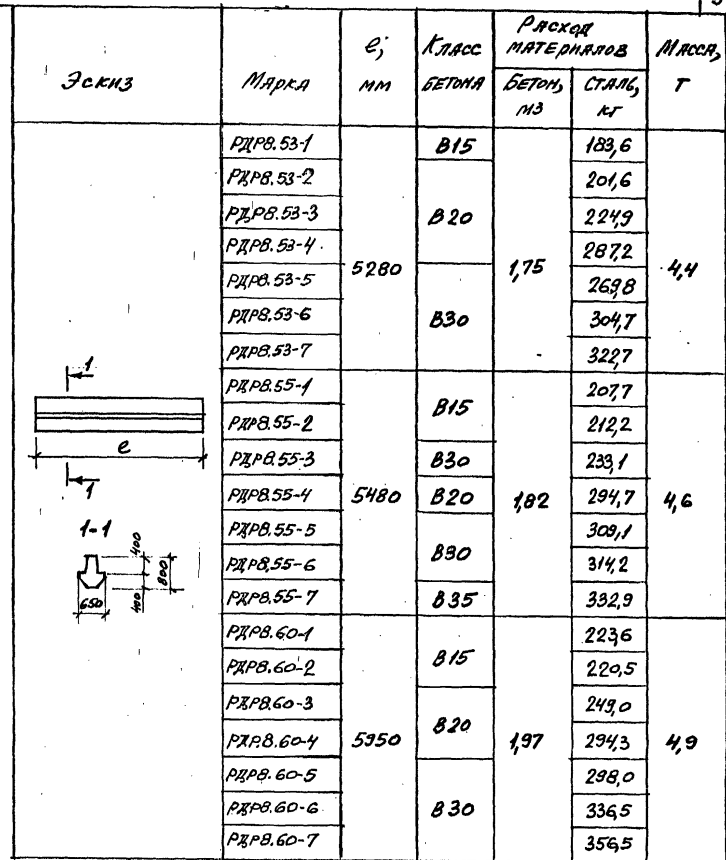 Эскиз | Марка | ℓ, мм | Класс бетона | Расход материалов: Бетон, м3 | Сталь, кг | Масса, т
РДР8.53-1 | 5280 | В15 | 1,75 | 183,6 | 4,4
РДР8.53-2 | В20 | 201,6
РДР8.53-3 | 224,9
РДР8.53-4 | 287,2
РДР8.53-5 | В30 | 269,8
РДР8.53-6 | 304,7
РДР8.53-7 | 322,7
РДР8.55-1 | 5480 | В15 | 1,82 | 207,7 | 4,6
РДР8.55-2 | 212,2
РДР8.55-3 | В30 | 233,1
РДР8.55-4 | В20 | 294,7
РДР8.55-5 | В30 | 309,1
РДР8.55-6 | 314,2
РДР8.55-7 | В35 | 332,9
РДР8.60-1 | 5950 | В15 | 1,97 | 223,6 | 4,9
РДР8.60-2 | 220,5
РДР8.60-3 | В20 | 249,0
РДР8.60-4 | 294,3
РДР8.60-5 | В30 | 298,0
РДР8.60-6 | 336,5
РДР8.60-7 | 356,5
1
ℓ
1
1-1
400
800
400
650